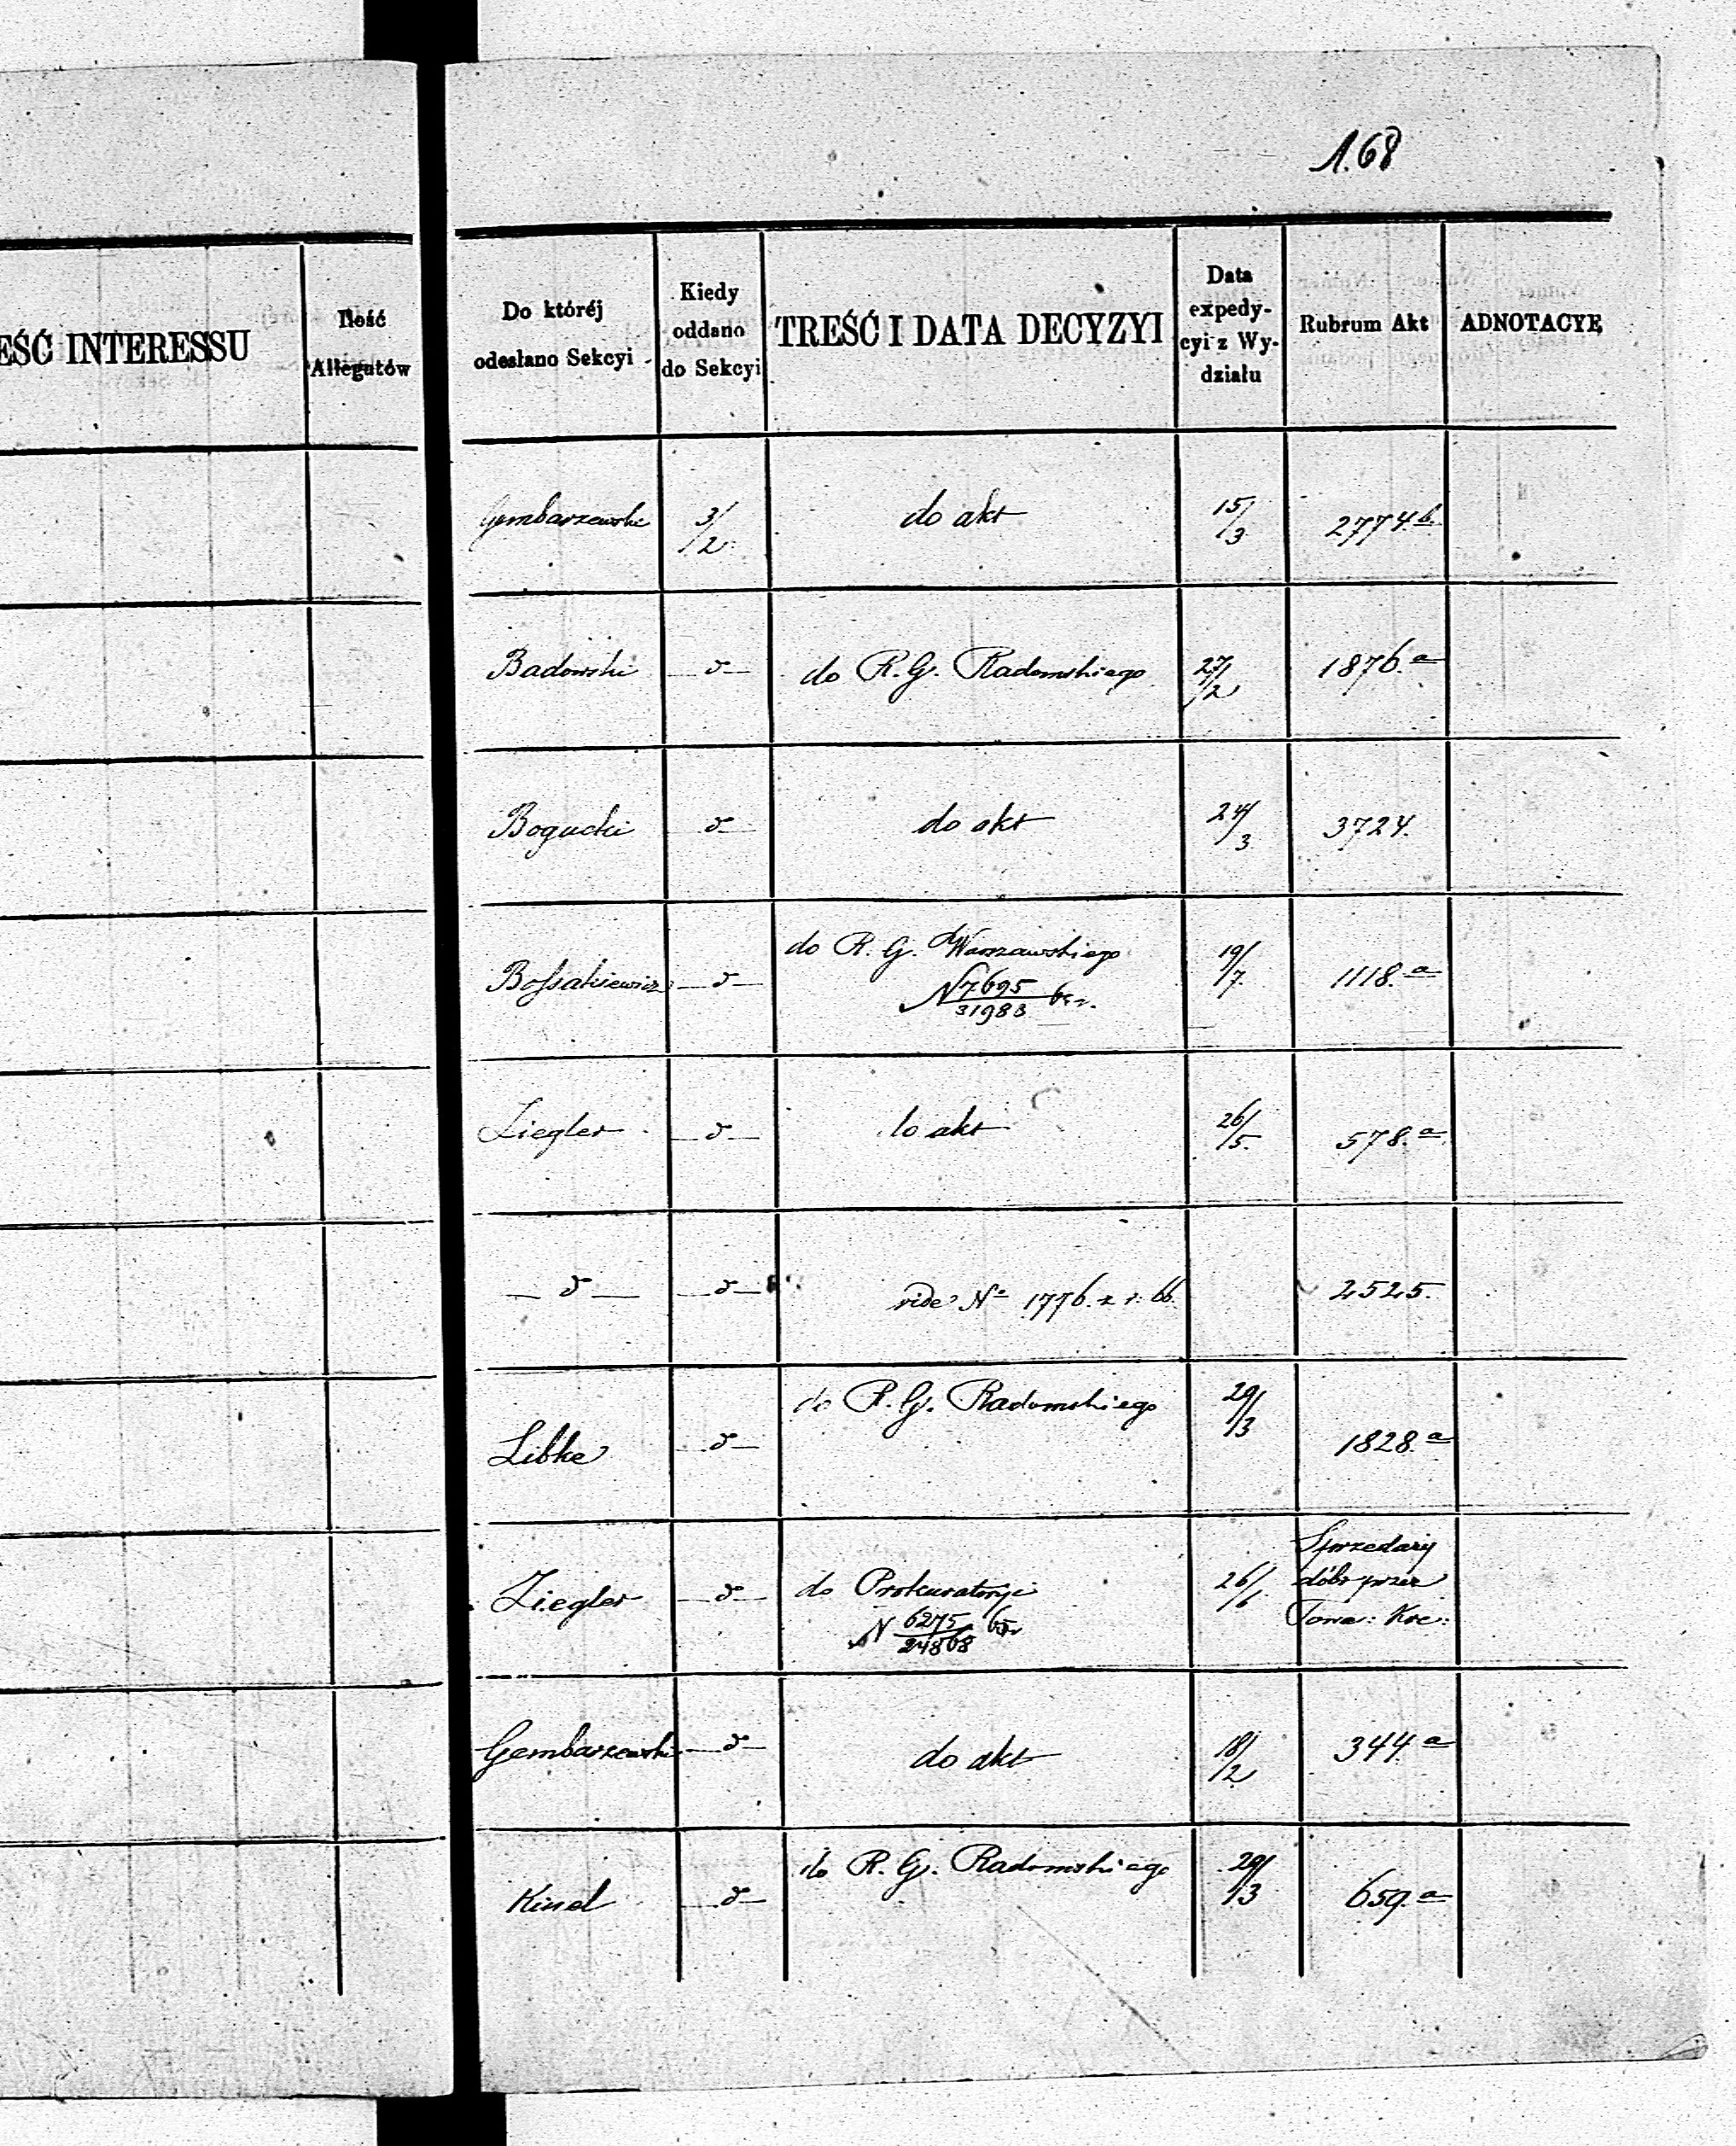 168
EŚĆ INTERESSU
Ilość
Allegatów
Do któréj
odesłano Sekcyi
Kiedy
oddano
do Sekcyi
TREŚĆ I DATA DECYZYI
Data
expedy-
cyi z Wy-
działu
Rubrum Akt
ADNOTACYE
Gembarzewski 3/2 do akt 15/3 2774 b.
Badowski d do R. G. Radomskiego 27/2 1876 a
Bogucki d do akt 24/3 3724.
do R. G. Warszawskiego
Bossakiewicz d 19/7 1118 a
N 7695/31983
Ziegler d do akt 26/5 578 a
d d vide No 1776 z r. 66. 2525.
do R. G. Radomskiego 29/3
Libke d 1828 a
Sprzedaży
Ziegler d do Prokuratoryi 26/6 dóbr przez
N 6275/24868 Towa: Kre:
Gembarzewski d do akt 18/2 344 a
do R. G. Radomskiego 29/3
Kisiel d 659 a